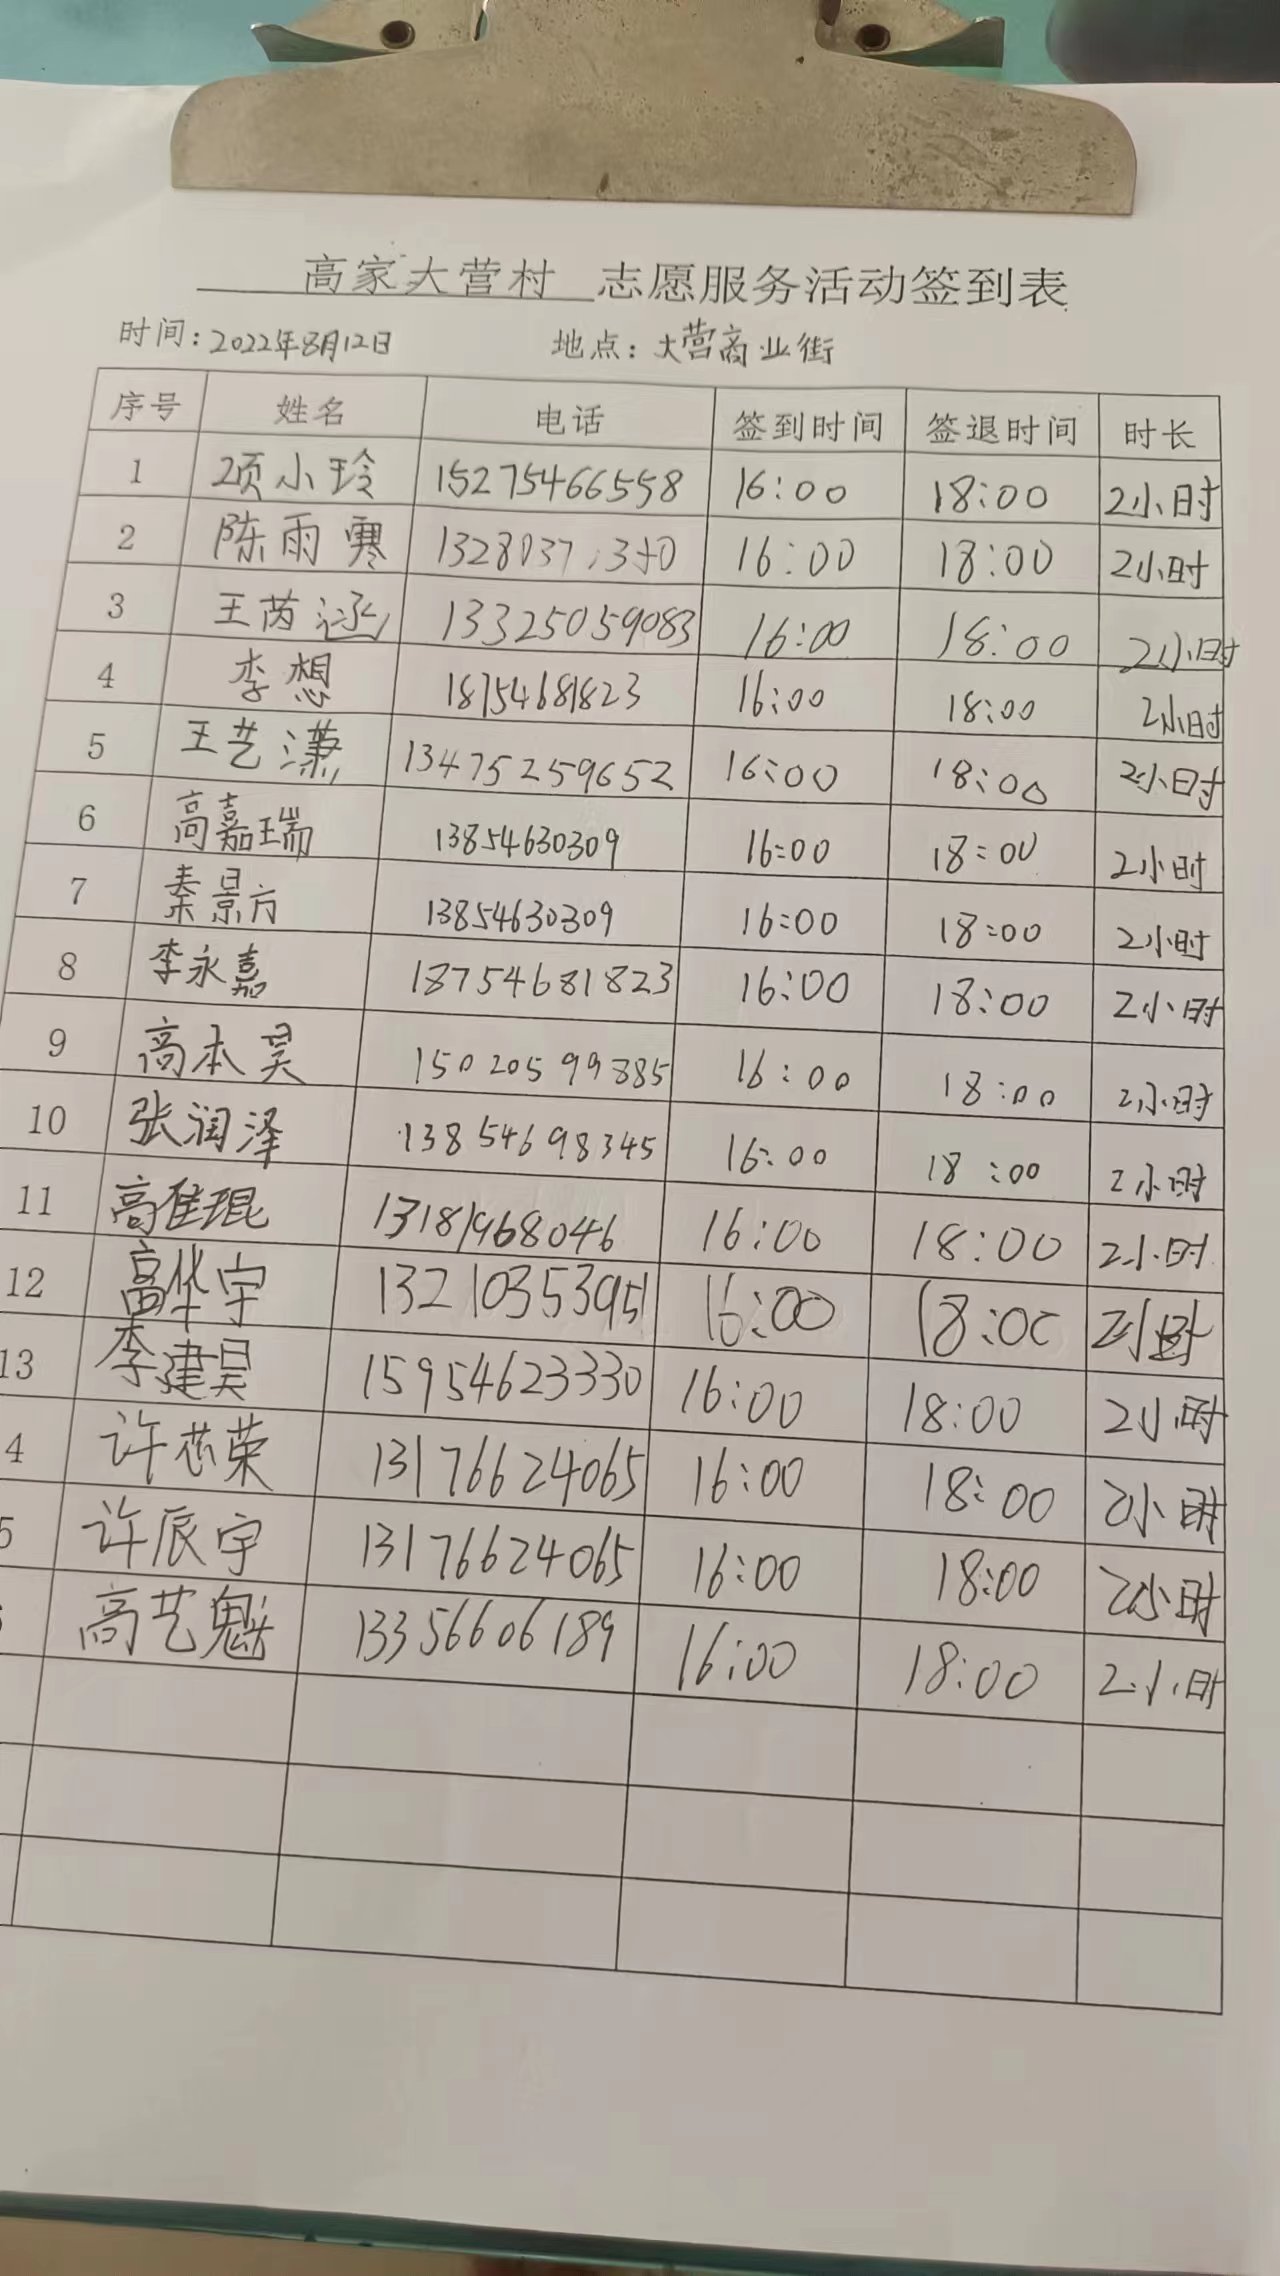 高家大营村 志愿服务活动签到表
时间:2022年8月12日 地点:大营商业街
序号 姓名 电话 签到时间 签退时间 时长
1 项小玲 15275466558 16:00 18:00 2小时
2 陈雨寒 16:00 18:00 2小时
3 王芮涵 13325059083 16:00 18:00 2小时
4 李想 18754681823 16:00 18:00 2小时
5 王艺潇 13475259652 16:00 18:00 2小时
6 高嘉瑞 13854630309 16:00 18:00 2小时
7 秦景方 13854630309 16:00 18:00 2小时
8 李永嘉 18754681823 16:00 18:00 2小时
9 高本昊 15020599885 16:00 18:00 2小时
10 张润泽 13854698345 16:00 18:00 2小时
11 高隹琨 13181968046 16:00 18:00 2小时
12 高华宇 13210353951 16:00 18:00 2小时
13 李建昊 15954623330 16:00 18:00 2小时
4 许芯荣 13176624065 16:00 18:00 2小时
5 许辰宇 13176624065 16:00 18:00 2小时
高艺魁 13356606189 16:00 18:00 2小时